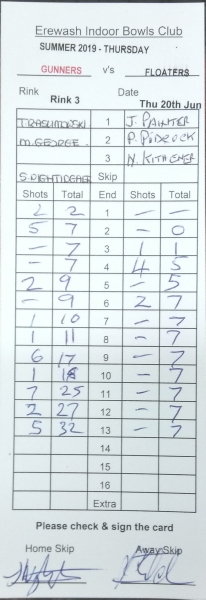 Erewash Indoor Bowls Club
SUMMER 2019 - THURSDAY
GUNNERS v's FLOATERS
Rink Date
Rink 3 Thu 20th Jun
1 J. PAINTER
M. GEORGE. 2 P. PIDCOCK
3 N. KITCHENER
Skip
Shots Total End Shots Total
2 2 1 - -
5 7 2 - 0
- 7 3 1 1
- 7 4 4 5
2 9 5 - 5
- 9 6 2 7
1 10 7 - 7
1 11 8 - 7
6 17 9 - 7
1 18 10 - 7
7 25 11 - 7
2 27 12 - 7
5 32 13 - 7
14
15
16
Extra
Please check & sign the card
Home Skip Away Skip